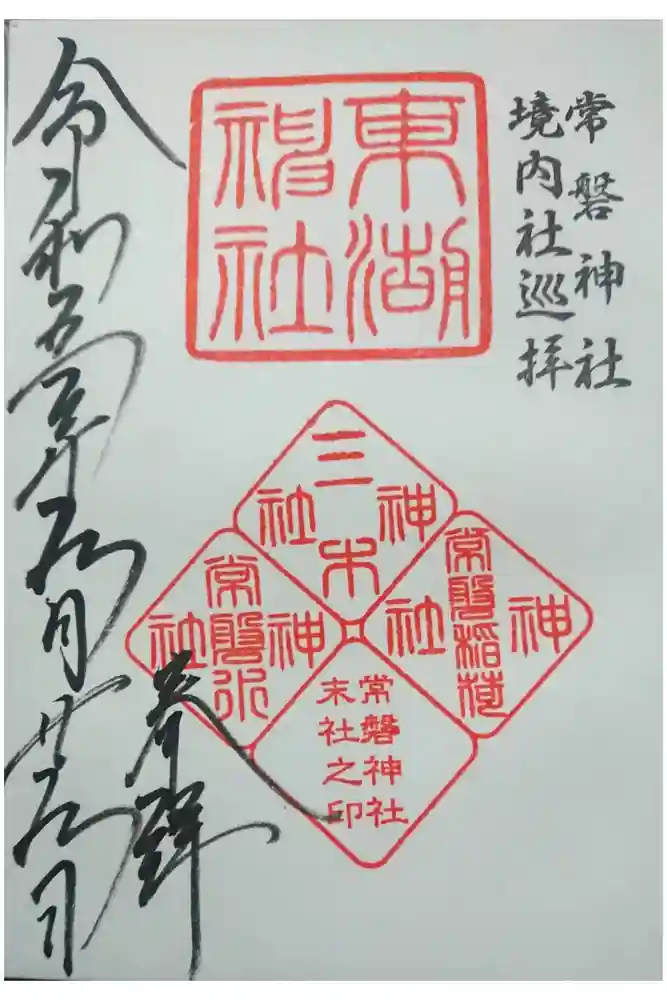 常磐神社
境内社巡拝
東湖神社
三木神社
常磐稲荷神社
常磐水神社
常磐神社
末社之印
奉拝
令和五年五月廿五日